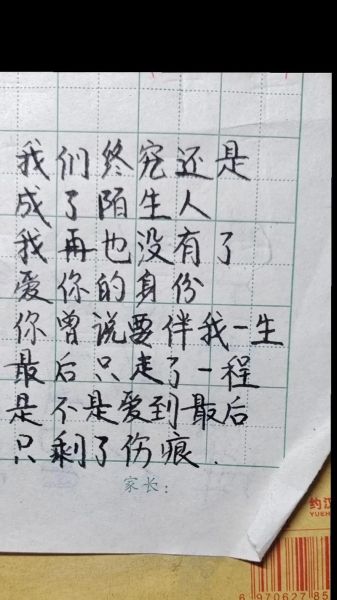 我们终究还是
成了陌生人
我再也没有了
爱你的身份
你曾说要伴我一生
最后只走了一程
是不是爱到最后
只剩了伤痕.
家长：
约汉
YUEH
6 970627 85